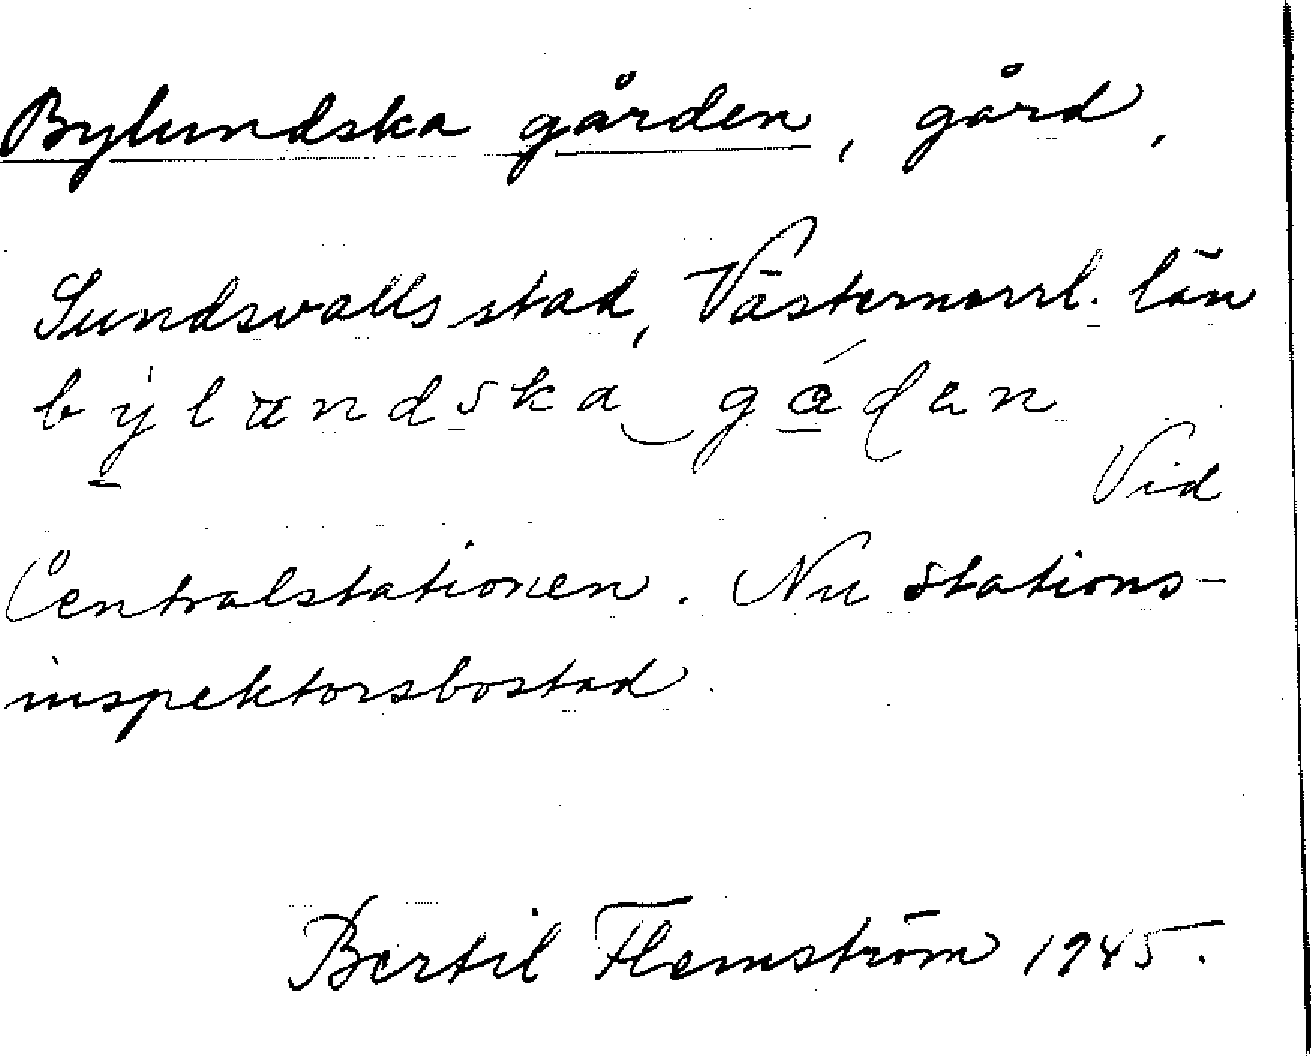 Bylundska gården, gård,
Sundsvalls stad, Västernorrl. län
bylundska gåden
Vid
Centralstationen. Nu stations-
inspektorsbostad.
Bertil Flemström 1945.